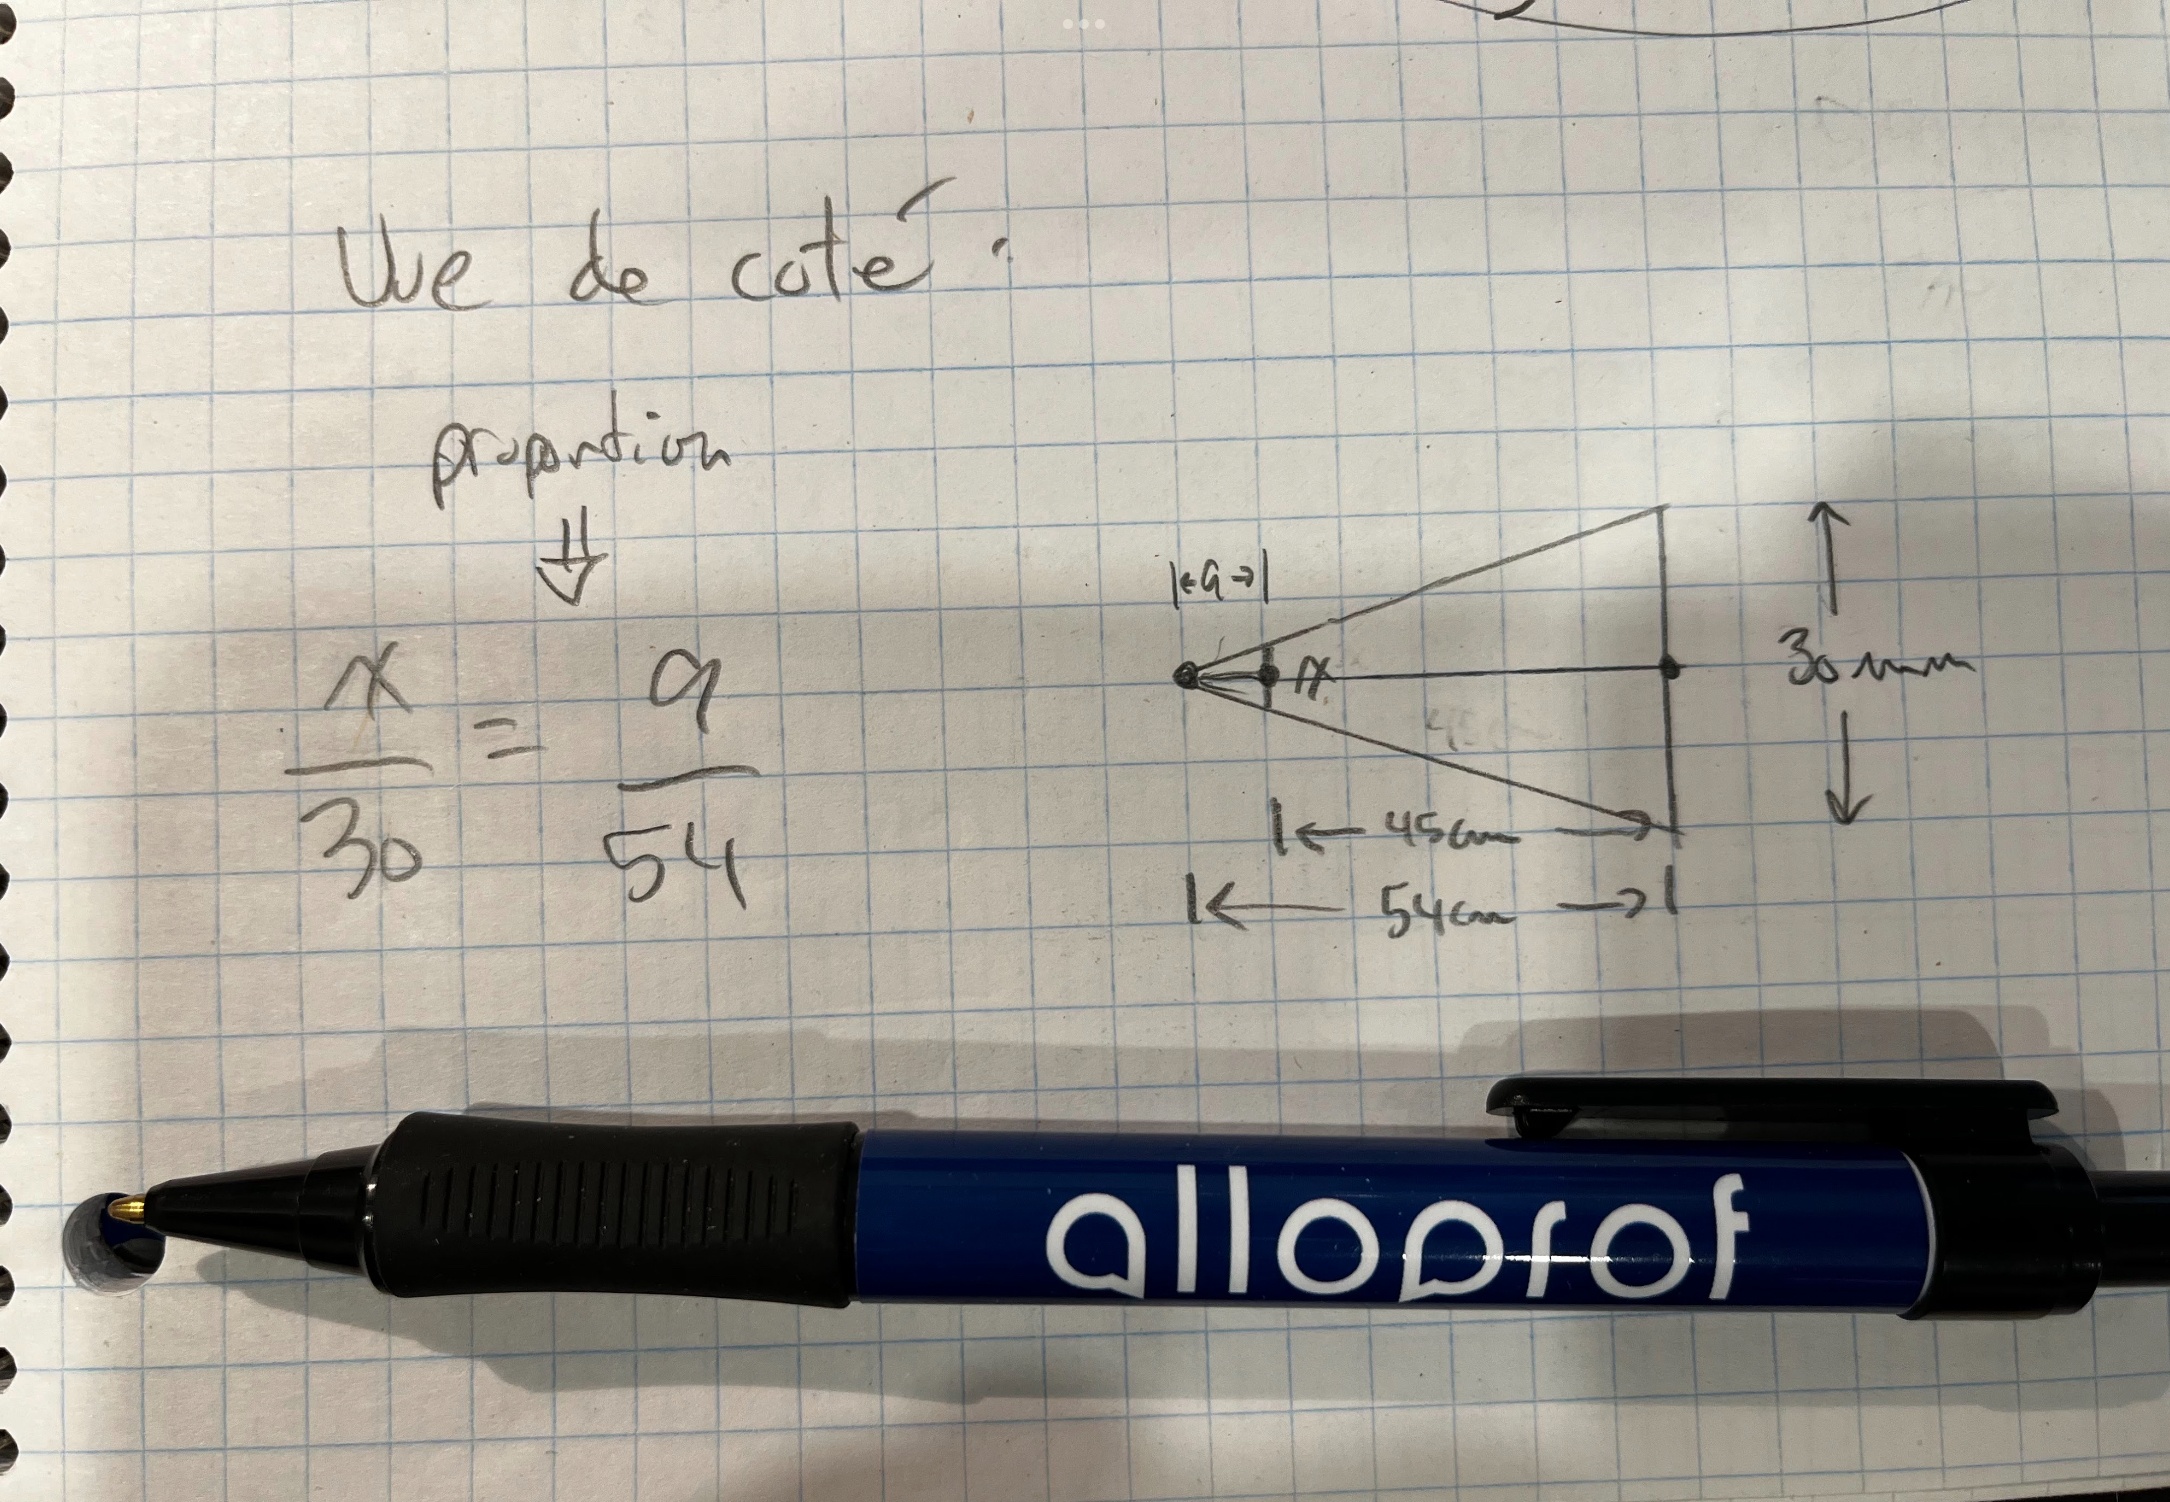 Vue de coté :
proportion
x/30 = 9/54
|←9→|
x
30 mm
|← 45cm →
|← 54cm →|
alloprof